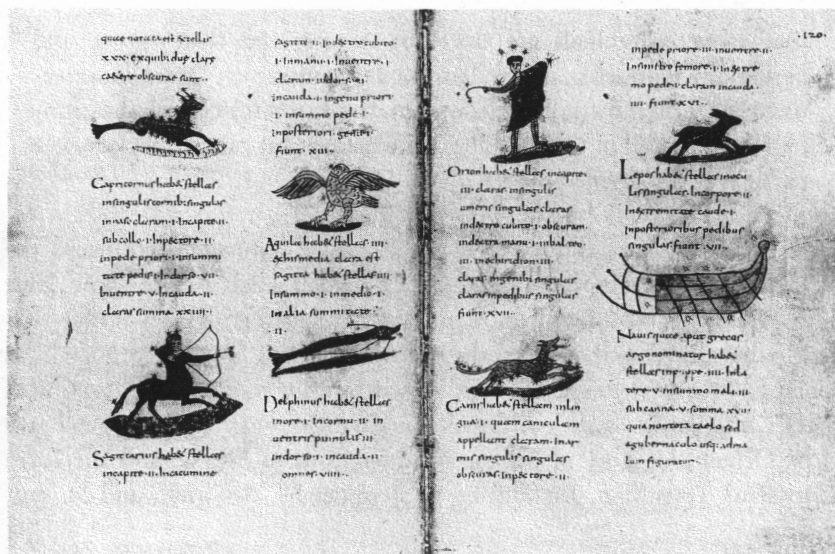 quae notata est & stellis
xxx · ex quibi due clare
cadere obscurae sunt ·
Capricornus hab& stellas
in singulis cornib; singulas
in naso claram · i · In capite · ii ·
sub collo · i · In pectore · ii ·
in pede priori · i · in summi
tate pedis · i · In dorso · vii ·
In ventre · v · In cauda · ii ·
claras summa xxiiii ·
Sagittarius hab& stellas
in capite · ii · In cacumine
sagitte · ii · in dextro cubito
· i · In manu · i · In ventre · i ·
claram
in cauda · i · In genu priori
· i · in summo pede · i ·
in posteriori
fiunt · xiii ·
Aquila hab& stellas · iiii ·
& his media clara est
sagitta hab& stellas iiii
In summo · i · in medio · i ·
In alia summitate
· ii ·
Delphinus hab& stellas
in ore · i · In cornu · ii · in
ventris pinnulis iii
in dorso · i · in cauda · ii ·
omnes · viiii ·
· 120 ·
Orion hab& stellas in capite
iii · claras in singulis
umeris singulas claras
in dextro cubito · i · obscuram ·
in dextra manu · i · in balteo ·
iii · in echiridion · iii ·
claras in genibi singulas
claras in pedibus singulas
fiunt · xvii ·
Canis hab& stellam in lin
gua · i · quam caniculam
appellant claram · In ar
mis singulis singulas
obscuras · In pectore · ii ·
in pede priore · iii · in ventre · ii ·
In sinistro femore · i · in dextre
mo pede · i · claram in cauda ·
iiii · fiunt · xvi ·
Lepos hab& stellas in ocu
lis singulas · In corpore · ii ·
In extremitate caude · i ·
In posterioribus pedibus
singulas fiunt · vii ·
Navis quae aput grecos
argo nominatur hab&
stellas in puppe · iiii · In la
tere · v · in summo mali · iii ·
sub carina · v · somma xvii ·
quia non tota caelo sed
a gubernaculo usq; ad ma
lum figuratur ·